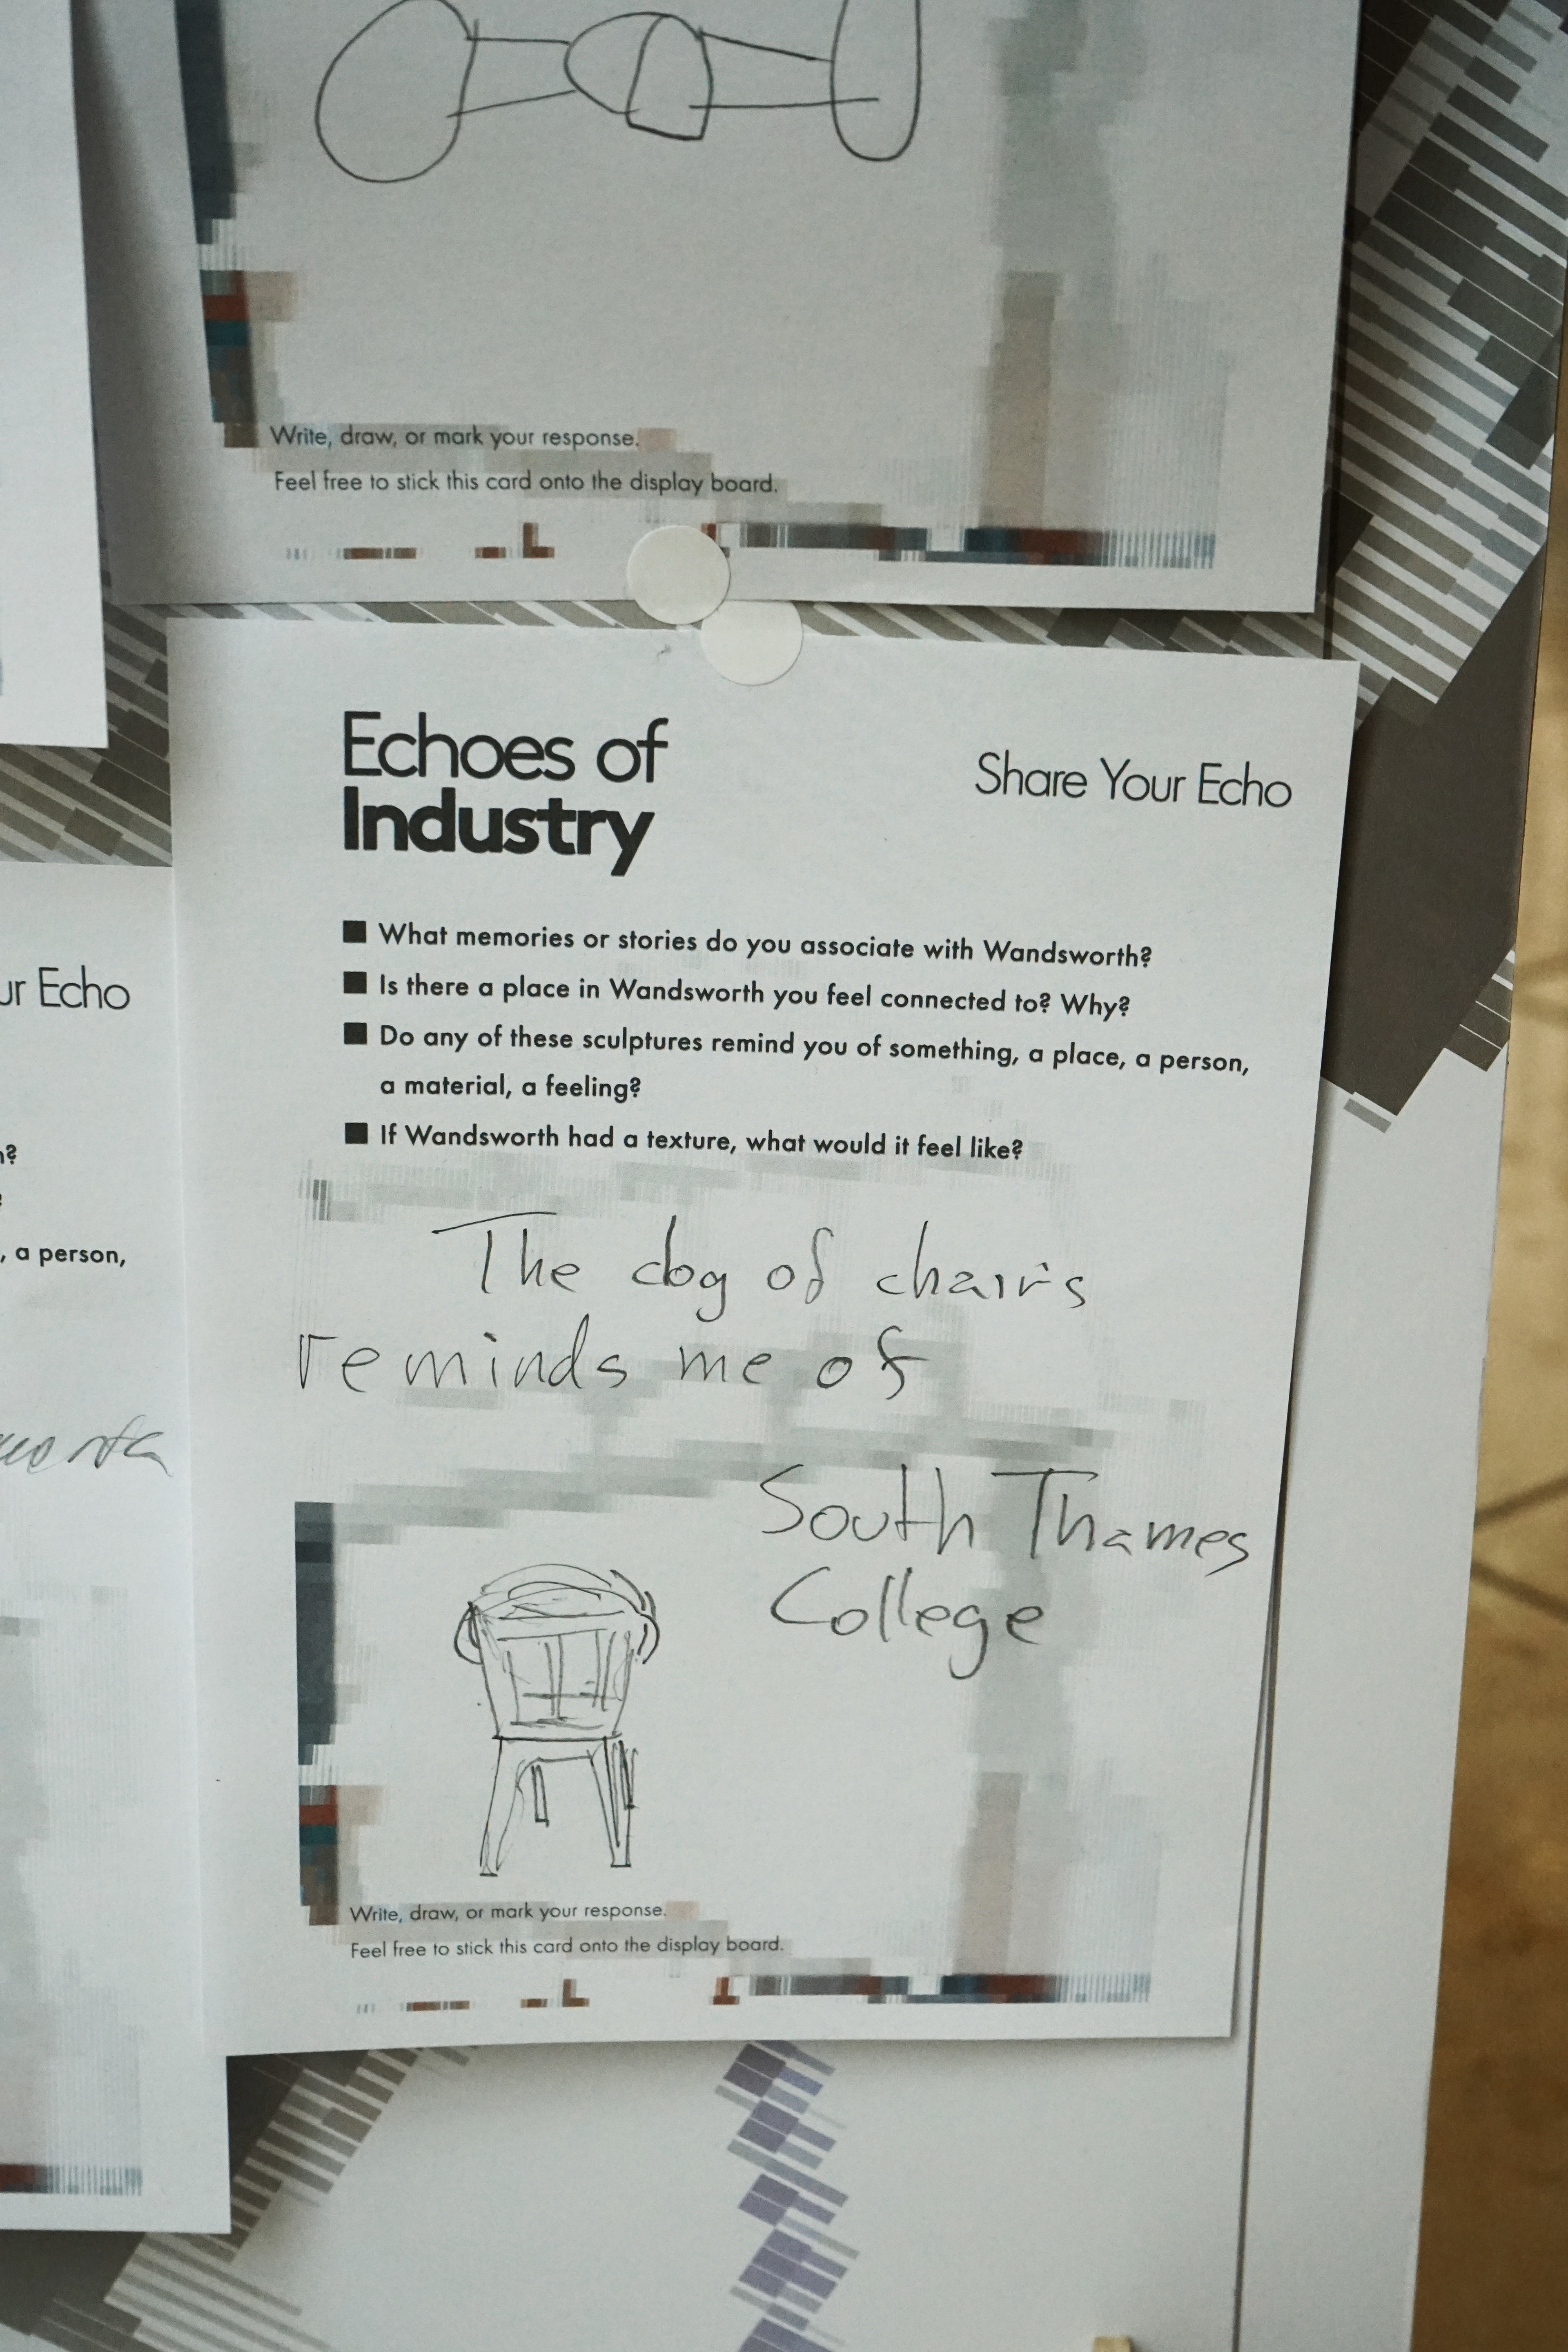 Write, draw, or mark your response.
Feel free to stick this card onto the display board.
Echoes of
Industry
Share Your Echo
■ What memories or stories do you associate with Wandsworth?
■ Is there a place in Wandsworth you feel connected to? Why?
■ Do any of these sculptures remind you of something, a place, a person,
a material, a feeling?
■ If Wandsworth had a texture, what would it feel like?
The dog of chairs
reminds me of
South Thames
College
Write, draw, or mark your response.
Feel free to stick this card onto the display board.
Echo
, a person,